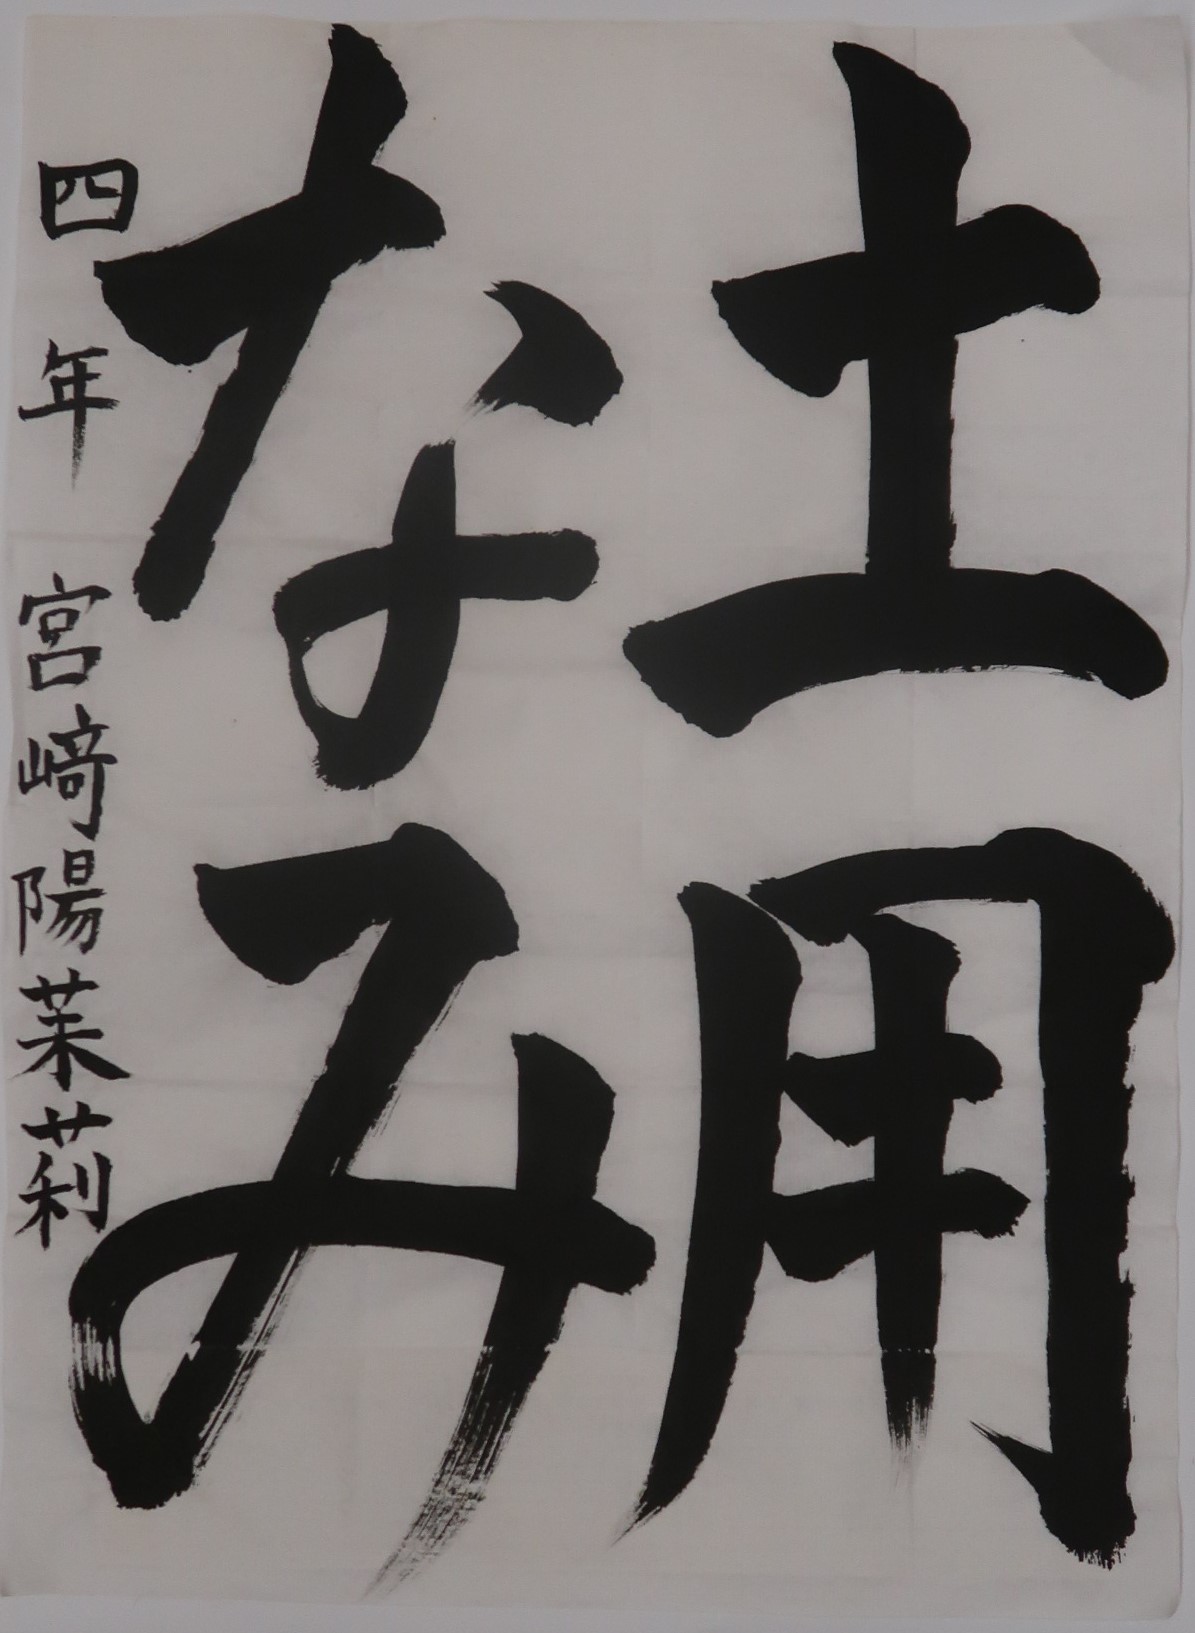 土用
なみ
四年 宮﨑陽茉莉